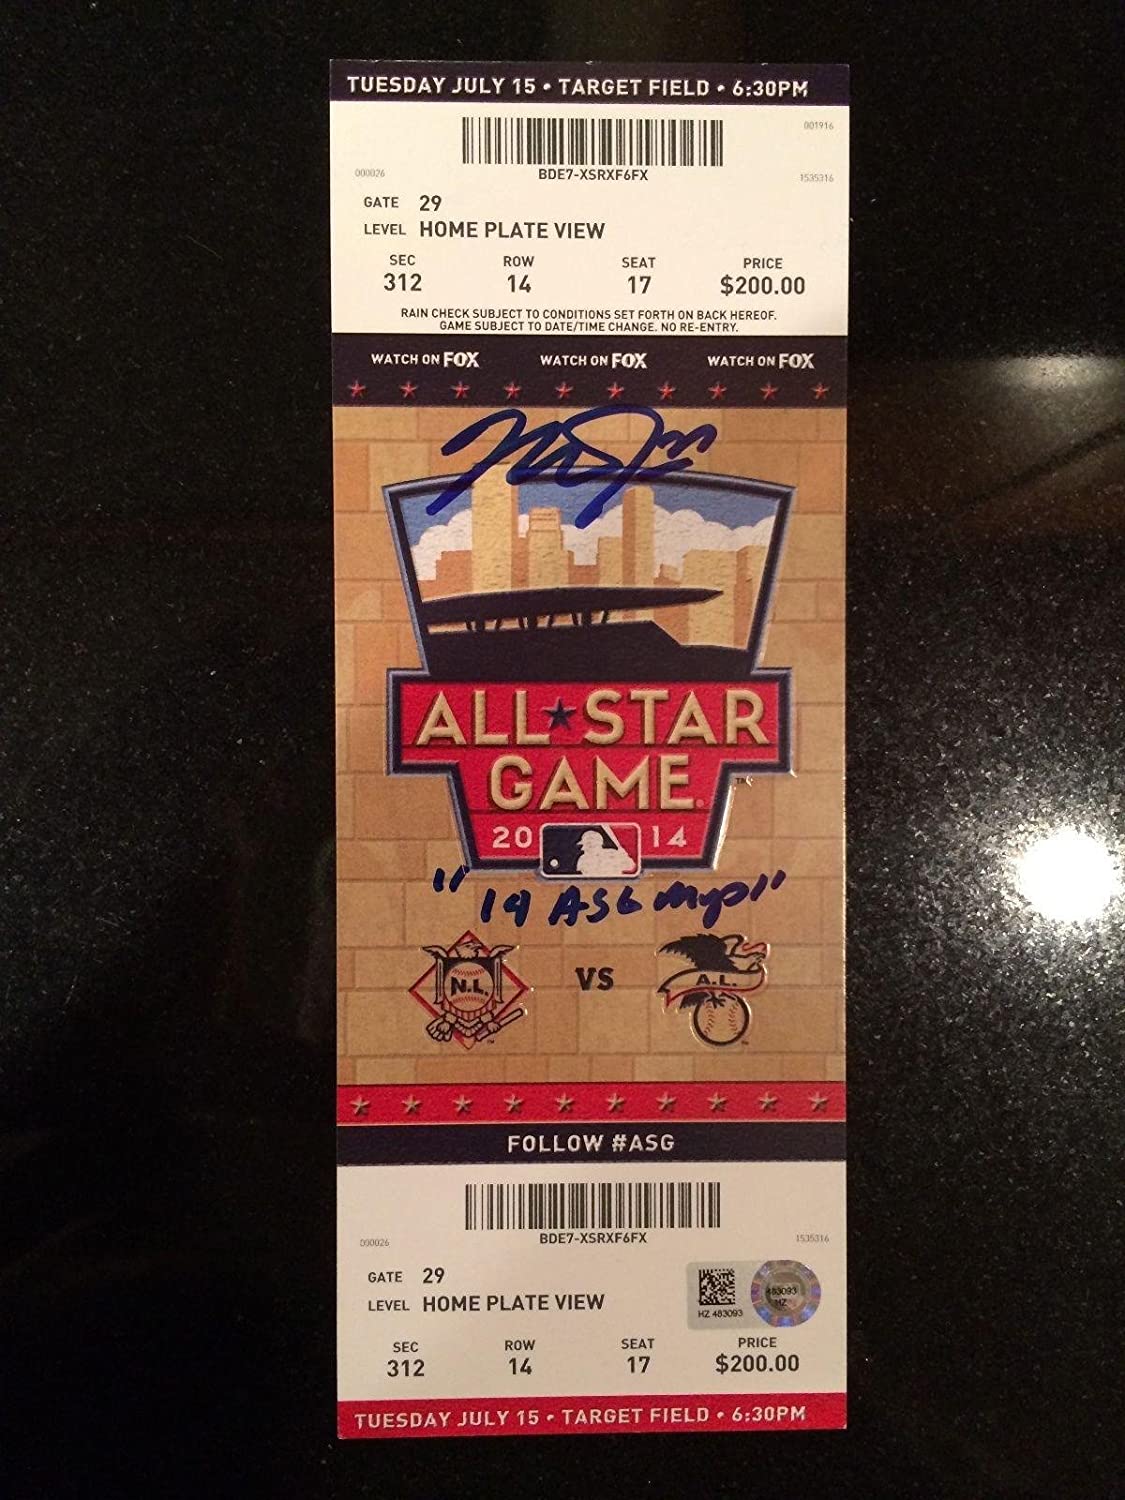 TUESDAY JULY 15 • TARGET FIELD • 6:30PM
001916
BDE7-XSRXF6FX
000026 1535316
GATE 29
LEVEL HOME PLATE VIEW
SEC ROW SEAT PRICE
312 14 17 $200.00
RAIN CHECK SUBJECT TO CONDITIONS SET FORTH ON BACK HEREOF.
GAME SUBJECT TO DATE/TIME CHANGE. NO RE-ENTRY.
WATCH ON FOX WATCH ON FOX WATCH ON FOX
ALL★STAR
GAME®
™
20 14
"14 ASG MVP"
N.L. VS A.L.
FOLLOW #ASG
BDE7-XSRXF6FX
000026 1535316
GATE 29
LEVEL HOME PLATE VIEW
HZ 483093
483093
HZ
SEC ROW SEAT PRICE
312 14 17 $200.00
TUESDAY JULY 15 • TARGET FIELD • 6:30PM